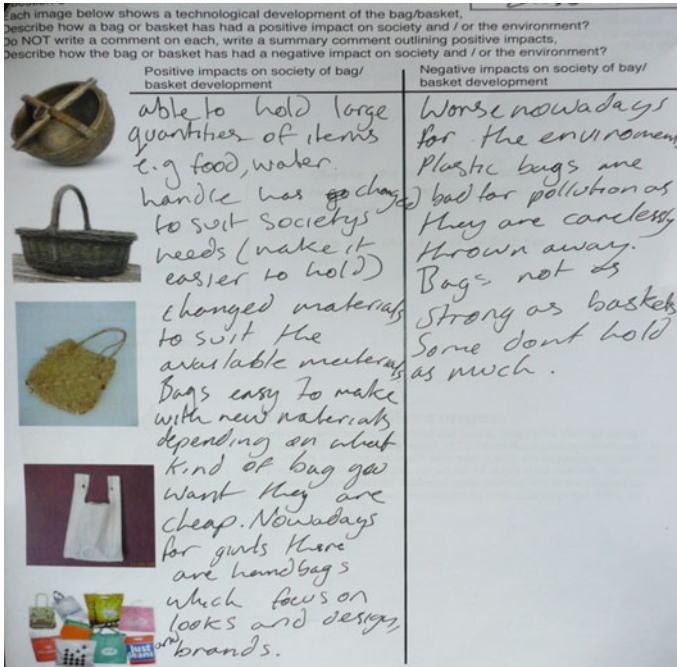 Each image below shows a technological development of the bag/basket,
Describe how a bag or basket has had a positive impact on society and / or the environment?
Do NOT write a comment on each, write a summary comment outlining positive impacts,
Describe how the bag or basket has had a negative impact on society and / or the environment?
Positive impacts on society of bag/
basket development
able to hold large
quantities of items
e.g food, water.
handle has changed
to suit societys
needs (make it
easier to hold)
changed materials
to suit the
available materials
Bags easy to make
with new materials
depending on what
kind of bag you
want they are
cheap. Nowadays
for girls there
are handbags
which focus on
looks and design,
and brands.
Negative impacts on society of bay/
basket development
Worse nowadays
for the enviroment
Plastic bags are
bad for pollution as
they are carelessly
thrown away.
Bags not as
strong as baskets
Some dont hold
as much.
Just
Jeans